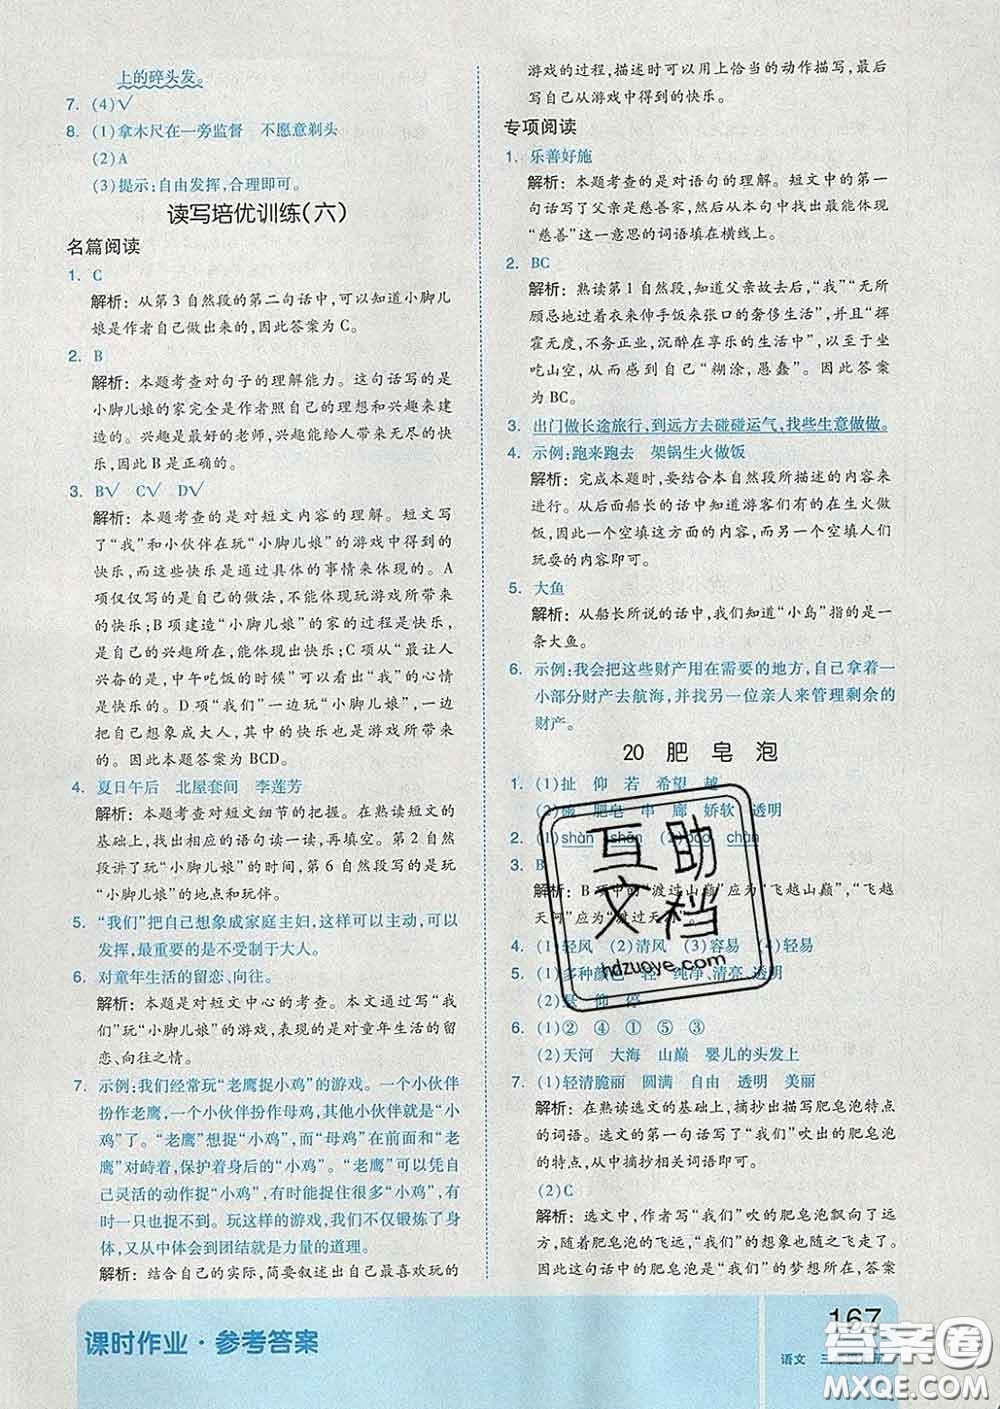 上的碎头发。
7. (4)√
8. (1)拿木尺在一旁监督 不愿意剃头
(2)A
(3)提示:自由发挥,合理即可。
读写培优训练(六)
名篇阅读
1. C
解析:从第3自然段的第二句话中,可以知道小脚儿
娘是作者自己做出来的,因此答案为C。
2. B
解析:本题考查对句子的理解能力。这句话写的是
小脚儿娘的家完全是作者照自己的理想和兴趣来建
造的。兴趣是最好的老师,兴趣能给人带来无尽的快
乐,因此B是正确的。
3. B√ C√ D√
解析:本题考查的是对短文内容的理解。短文写
了“我”和小伙伴在玩“小脚儿娘”的游戏中得到的快
乐,而这些快乐是通过具体的事情来体现的。A
项仅仅写的是自己的做法,不能体现游戏所带来
的快乐;B项建造“小脚儿娘”的家的过程是快乐的,
是自己的兴趣所在带来的快乐;C项从“最让人
兴奋的时候,中午吃饭的时候”可以看出“我”的心情
是快乐的。D项“我们”一边玩“小脚儿娘”,一边
把自己想象成大人,其中的快乐也是游戏带来
的。因此本题答案为BCD。
4. 夏日午后 北屋套间 李莲芳
解析:本题考查对短文细节的把握。在熟读短文的
基础上,找出相应的语句读一读,再填空。第2自然
段讲了玩“小脚儿娘”的时间,第6自然段写的是玩
“小脚儿娘”的地点和玩伴。
5. “我们”把自己想象成家庭主妇,这样可以主动,可以
发挥,最重要的是不受制于大人。
6. 对童年生活的留恋、向往。
解析:本题是对短文中心的考查。本文通过写“我
们”玩“小脚儿娘”的游戏,表现的是对童年生活的留
恋、向往之情。
7. 示例:我们经常玩“老鹰捉小鸡”的游戏。一个小伙伴
扮作老鹰,一个小伙伴扮作母鸡,其他小伙伴就是“小
鸡”了。“老鹰”想捉“小鸡”,而“母鸡”在前面和“老鹰”
对峙着,保护着身后的“小鸡”。“老鹰”可以凭着自
己灵活的动作捉“小鸡”,有时能捉住很多“小鸡”,有时
一只也捉不到。玩这样的游戏,我们不仅锻炼了身
体,又从中体会到团结就是力量的道理。
解析:结合自己的实际,简要叙述出自己最喜欢玩的
游戏的过程,描述时可以用上恰当的动作描写,最后
写自己从游戏中得到的快乐。
专项阅读
1. 乐善好施
解析:本题考查的是对语句的理解。短文中的第一
句话写了父亲是慈善家,然后从本句中找出最能体现
“慈善”这一意思的词语填在横线上。
2. BC
解析:熟读第1自然段,知道父亲故去后,“我”“无所
顾忌地过着衣来伸手饭来张口的奢侈生活”,并且“挥
霍无度,不务正业,沉醉在享乐的生活中”,以至于坐
吃山空,从而感到自己“糊涂,愚蠢”。因此答案
为BC。
3. 出门做长途旅行,到远方去碰碰运气,找些生意做做。
4. 示例:跑来跑去 架锅生火做饭
解析:完成本题时,要结合本自然段所描述的内容来
进行。从后面船长的话中知道游客们有的在生火做
饭,因此一个空填这方面的内容,另一个空填人们
玩耍的内容即可。
5. 大鱼
解析:从船长所说的话中,我们知道“小岛”指的是一
条大鱼。
6. 示例:我会把这些财产用在需要的地方,自己拿着一
小部分财产去航海,并找另一位亲人来管理剩余的
财产。
20 肥皂泡
1. (1)扯 仰 若 希望 越
(2)碗 肥皂 串 廊 娇软 透明
2. (1)shàn shān (2) chàn
3. B
解析:B项中的“渡过山巅”应为“飞越山巅”,“飞越
天河”应为“渡过天河”。
4. (1)轻风 (2)清风 (3)容易 (4)轻易
5. (1)多种颜色 轻 纯净、清亮、透明
(2)悬 仰 停
6. (1)② ④ ① ⑤ ③
(2)天河 大海 山巅 婴儿的头发上
7. (1)轻清脆丽 圆满 自由 透明 美丽
解析:在熟读选文的基础上,摘抄出描写肥皂泡特点
的词语。选文的第一句话写了“我们”吹出的肥皂泡的
特点,从中摘抄相关词语即可。
(2)C
解析:选文中,作者写“我们”吹的肥皂泡飘向了远
方,随着肥皂泡的飞远,“我们”的想象也飞走了。
因此这句话中的肥皂泡是“我们”的梦想所在,答案
互助
文档
hdzuoye.com
课时作业·参考答案
167
语文 三年级
答案圈
MXQE.COM